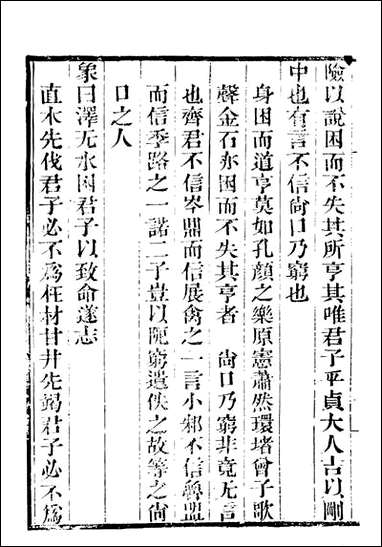 險以說困而不失其所亨其唯君子乎貞大人吉以剛
中也有言不信尙口乃窮也
身困而道亨莫如孔顏之樂原憲蕭然環堵曾子歌
聲金石亦困而不失其亨者 尙口乃窮非竟无言
也齊君不信岑鼎而信展禽之一言小邾不信魯盟
而信季路之一諾二子豈以阨窮遺佚之故等之尙
口之人
象曰澤无水困君子以致命遂志
直木先伐君子必不爲枉材甘井先竭君子必不爲